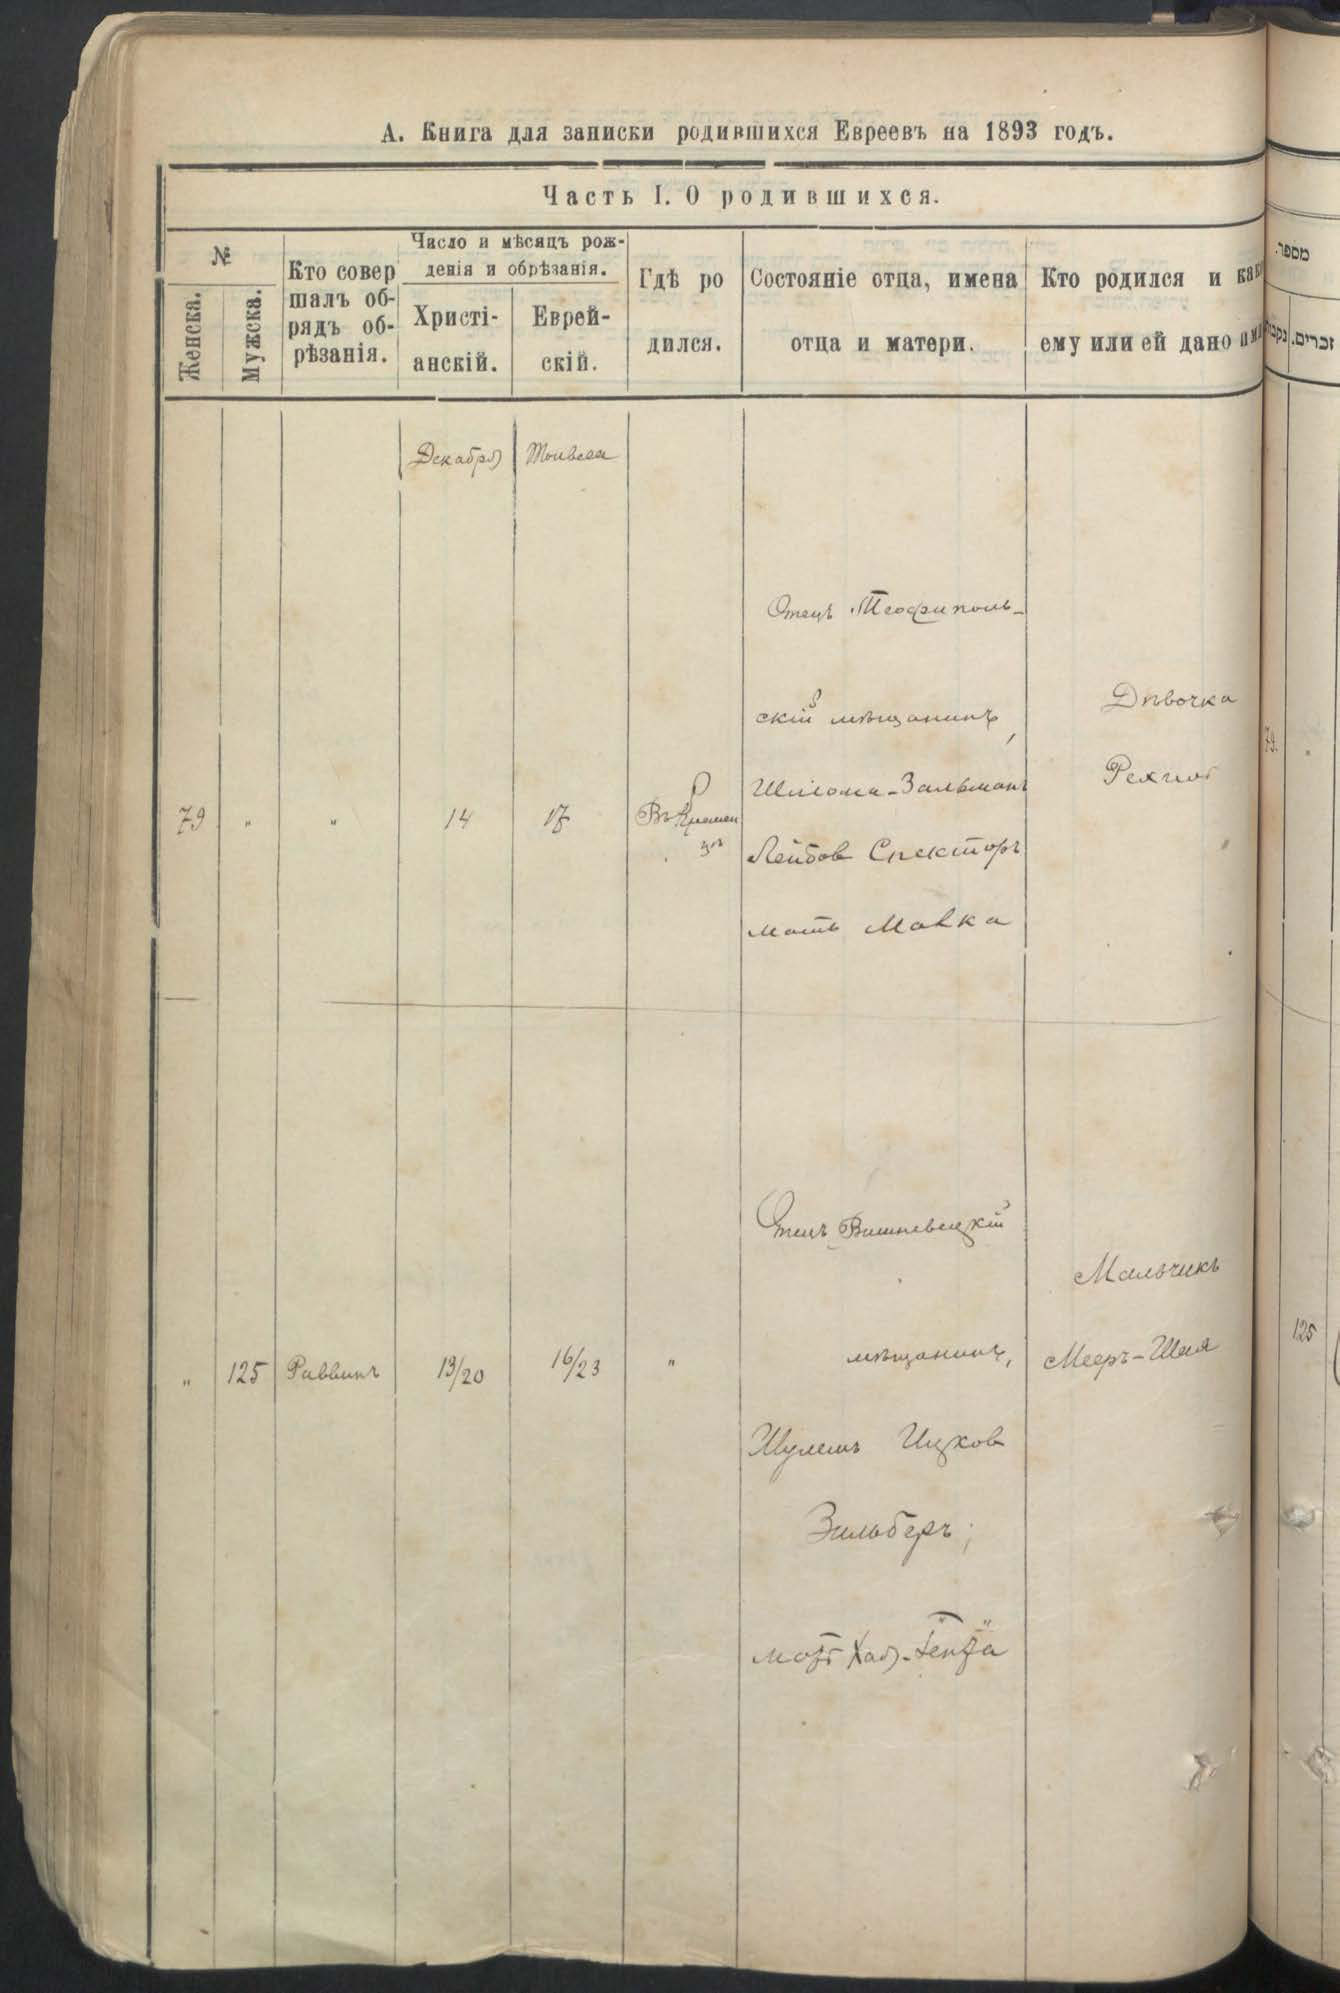 А. Книга для записки родившихся Евреевъ на 1893 годъ.
Часть I. О родившихся.
№
Женска.
Мужска.
Кто совер
шалъ об-
рядъ об-
рѣзанія.
Число и мѣсяцъ рож-
денія и обрѣзанія.
Христі-
анскій.
Еврей-
скій.
Гдѣ ро
дился.
Состояніе отца, имена
отца и матери.
Кто родился и како
ему или ей дано имя
Декабря
Тейвеса
79
"
"
14
17
Въ Кремен
цѣ
Отецъ Теофиполь-
скій мѣщанинъ,
Шліома-Зальманъ
Лейбов Спекторъ
мать Малка
Дѣвочка
"
125
Раввинъ
13/20
16/23
"
Отецъ Вишневецкій
мѣщанинъ,
Шулемъ Ицков
Зильберъ;
мать Хая-Генда
Мальчикъ
Мееръ-Шая
מספר.
זכרים.
79.
"
125